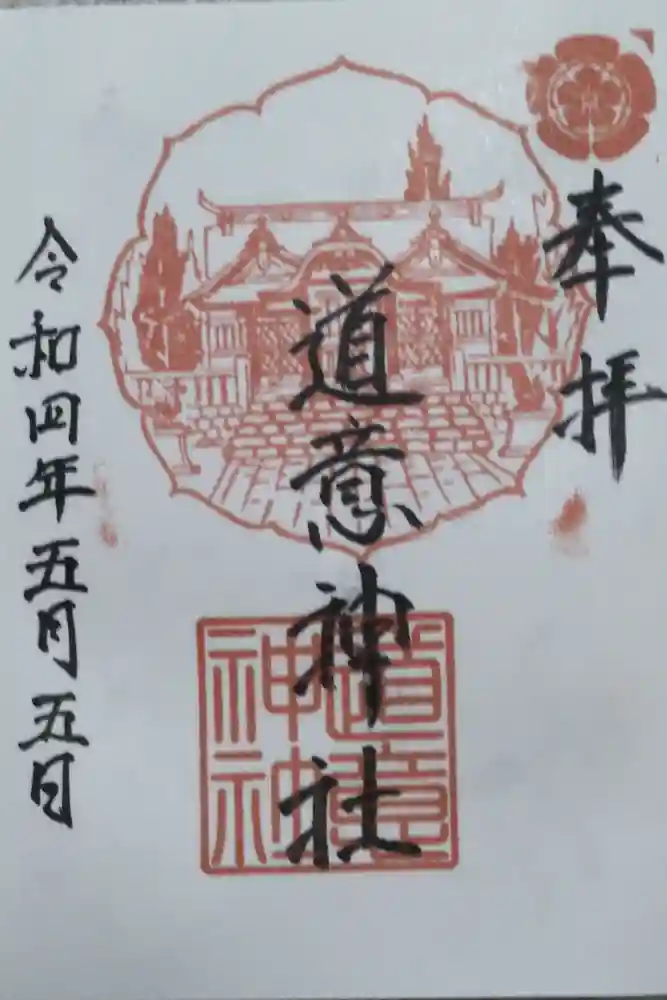 奉拝
道意神社
道意
神神
令和四年五月五日